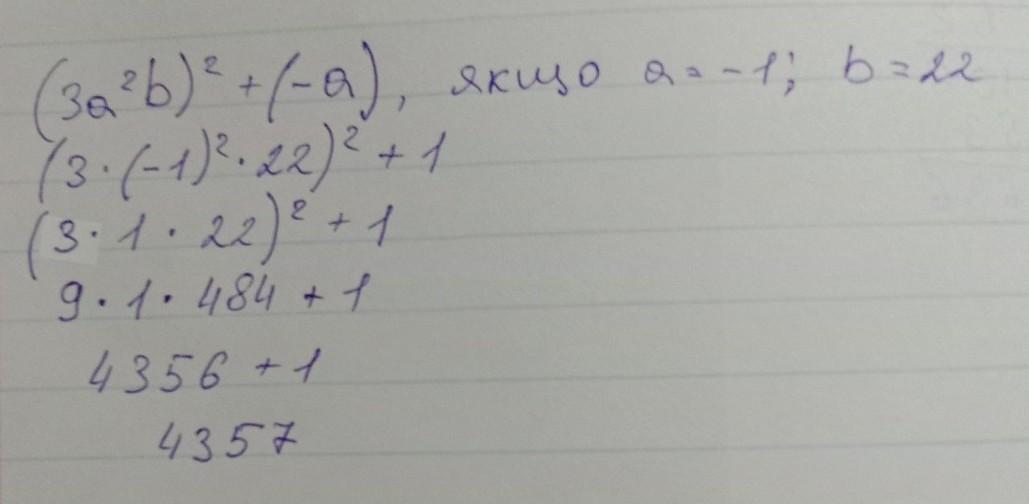 (3a²b)² + (-a), якщо a = -1; b = 22
(3 · (-1)² · 22)² + 1
(3 · 1 · 22)² + 1
9 · 1 · 484 + 1
4356 + 1
4357